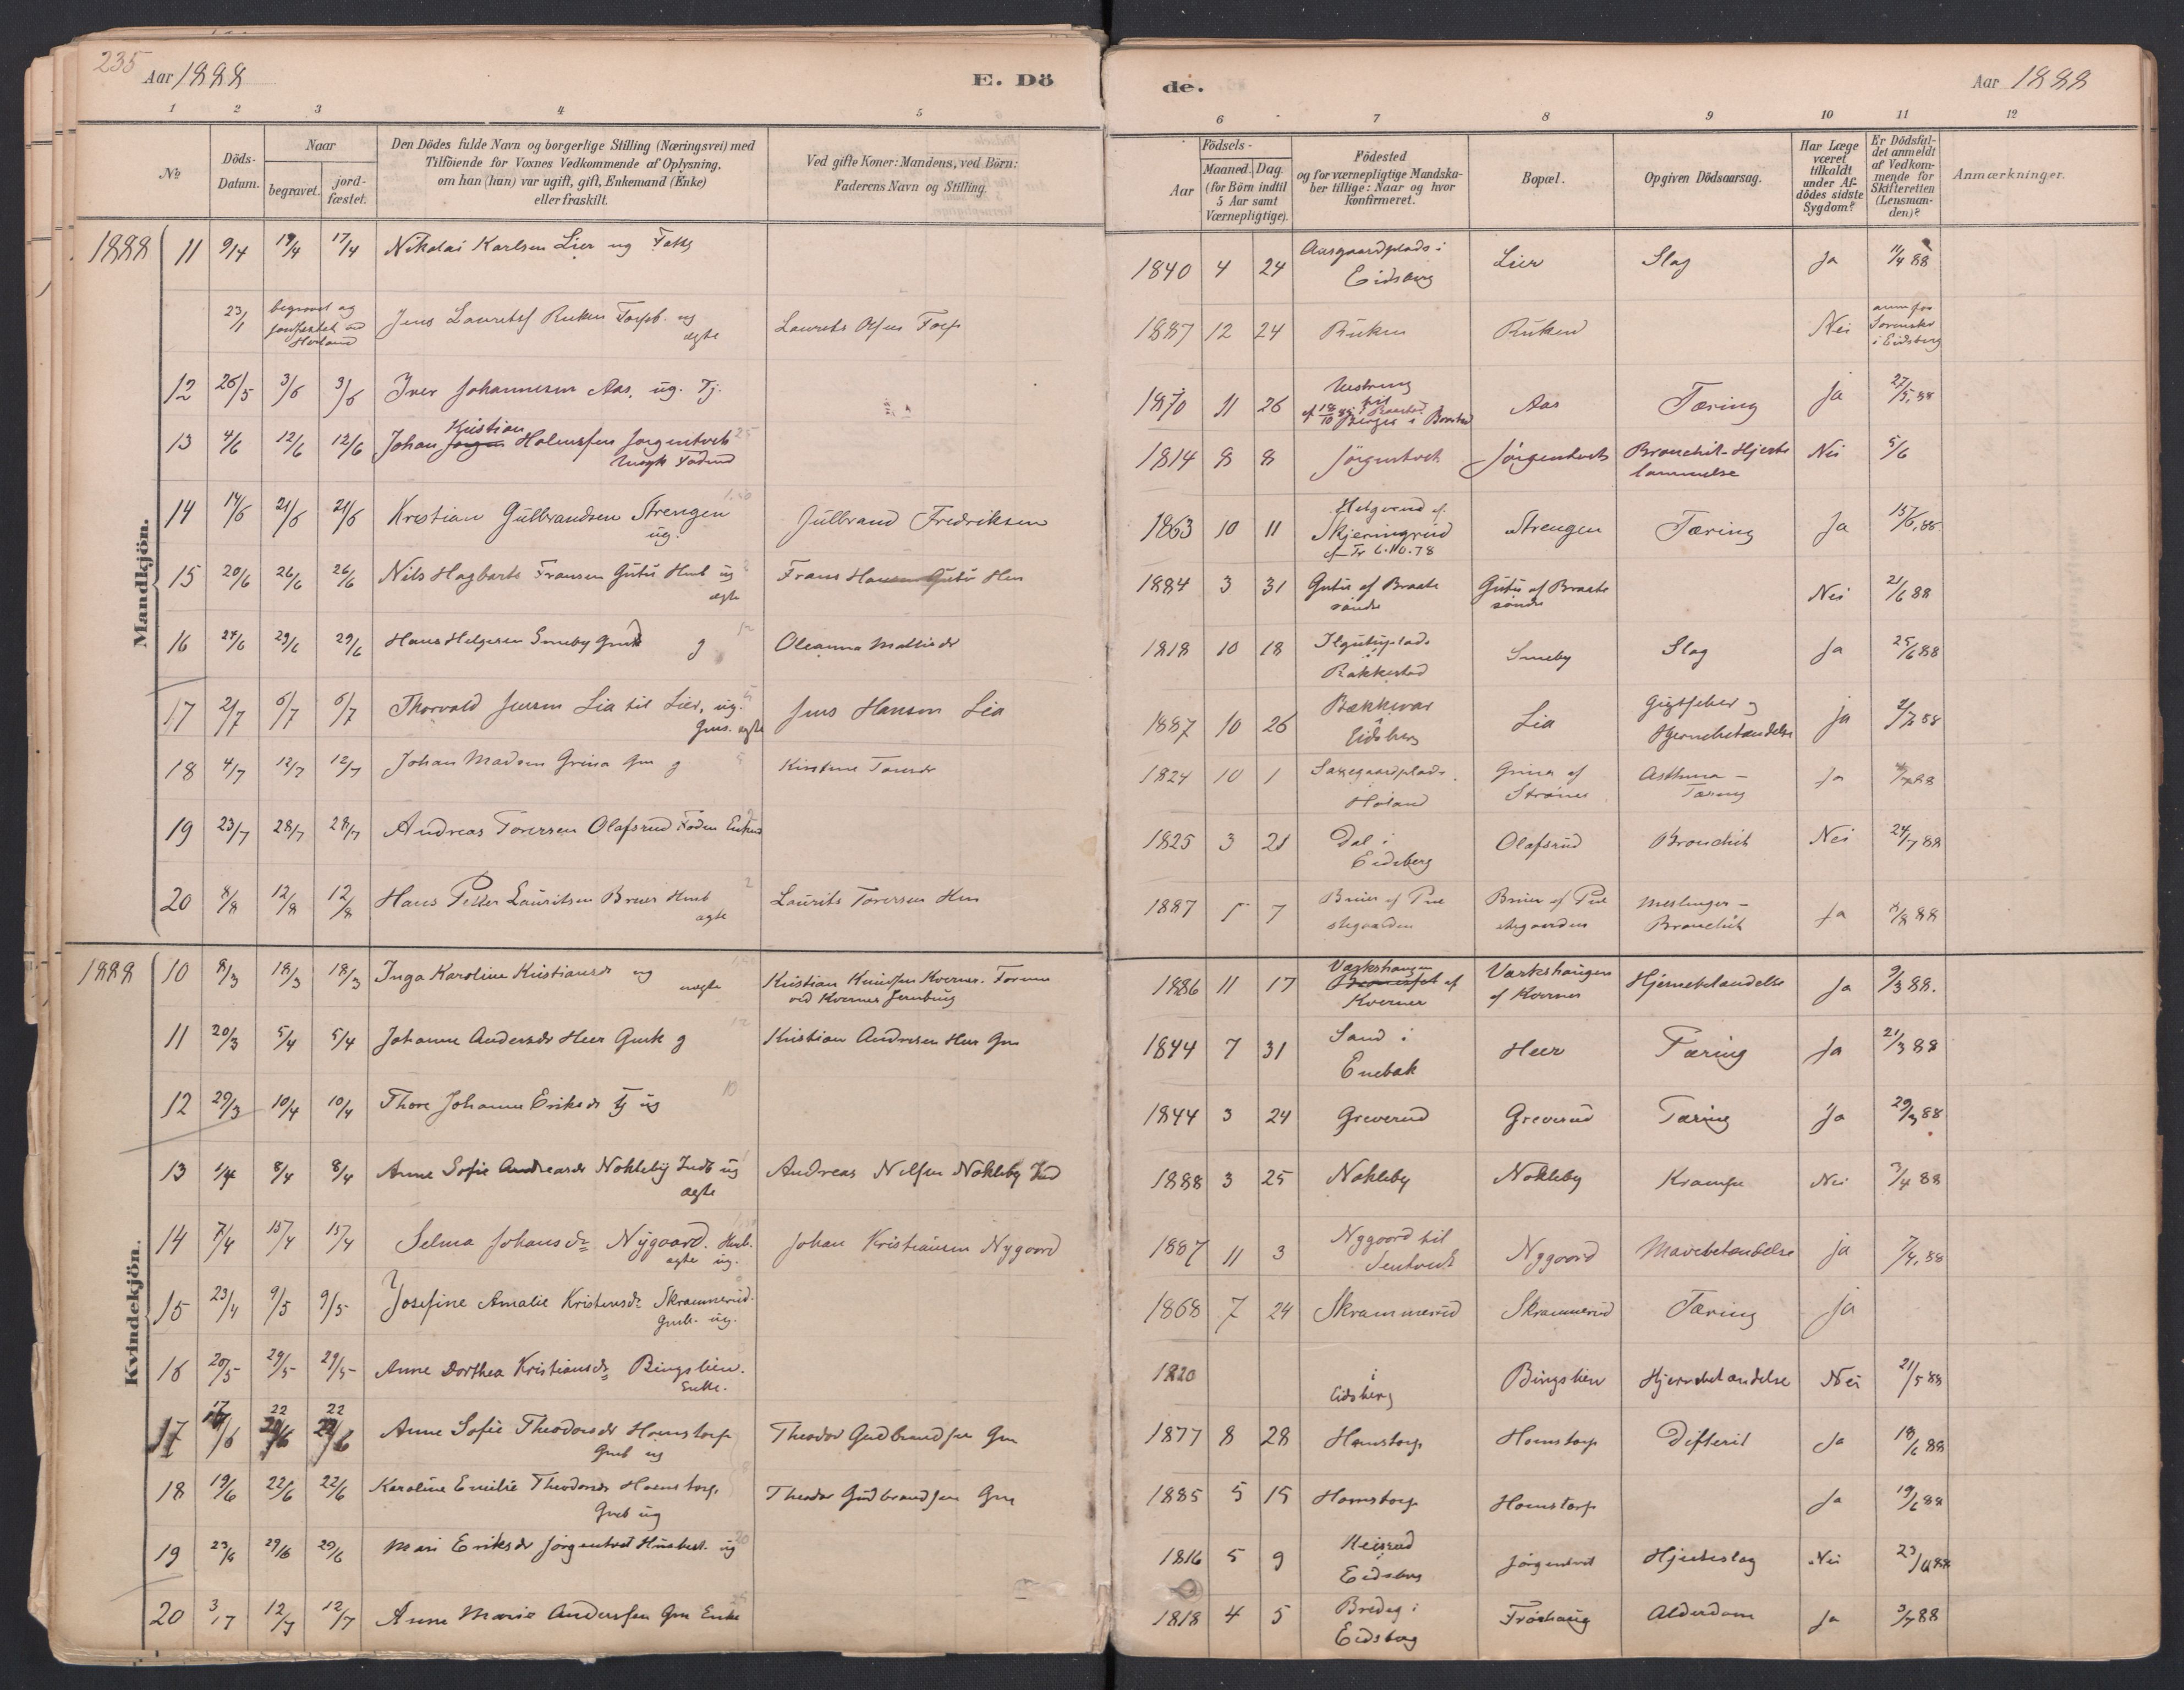 235
Aar 1888
E. Dö
de.
Aar 1888
1 2 3 4 5 6 7 8 9 10 11 12
№
Döds-Datum.
Naar
begravet.
jord-fæstet.
Den Dödes fulde Navn og borgerlige Stilling (Næringsvei) med
Tilföiende for Voxnes Vedkommende af Oplysning,
om han (hun) var ugift, gift, Enkemand (Enke)
eller fraskilt.
Ved gifte Koner: Mandens, ved Börn:
Faderens Navn og Stilling.
Födsels-
Aar
Maaned. Dag.
(for Börn indtil
5 Aar samt
Værnepligtige).
Födested
og for værnepligtige Mandska-
ber tillige: Naar og hvor
konfirmeret.
Bopæl.
Opgiven Dödsaarsag.
Har Læge
været
tilkaldt
under Af-
dödes sidste
Sygdom?
Er Dödsfal-
det anmeldt
af Vedkom-
mende for
Skifteretten
(Lensman-
den)?
Anmærkninger.
Mandkjön.
1888 11 9/4 17/4 17/4 Nikolai Karlsen Lier ug Fattg 1840 4 24 Aasgaardplads i Eidsberg Lier Slag Ja 11/4 88
23/1 begravet og jordfæstet ved Hovland Jens Lauritsf Ruken Torpb. ug ægte Laurits Olsen Torp 1887 12 24 Ruken Ruken Nei anm for Sorenskr i Eidsberg
12 26/5 3/6 3/6 Iver Johannesen Aas, ug. Tj. 1870 11 26 Aas Tæring Ja 27/5.88
13 4/6 12/6 12/6 Johan Kristian Holmsfen Jørgentvet Føderaad 1814 8 8 Jørgentvet Jørgentvet Bronchit-Hjerte lammelse Nei 5/6
14 14/6 21/6 21/6 Kristian Gulbrandsen Strengen ug. Gulbrand Fredriksen 1863 10 11 Skjeringrud Strengen Tæring Ja 15/6.88
15 20/6 26/6 26/6 Nils Hagbarts Fransen Gutu Hmb ug ægte Frans Hansen Gutu Hm 1884 3 31 Gutu af Braate søndre Gutu af Braate søndre Nei 21/6 88
16 24/6 29/6 29/6 Hans Helgesen Smeby Gmd g Oleanna Mathisdr 1818 10 18 Rakkestad Smeby Slag Ja 25/6 88
17 2/7 6/7 6/7 Thorvald Jensen Lia til Lier, ug. Gms. ægte Jens Hansen Lia 1887 10 26 Bækkevar i Eidsberg Lia Gigtfeber og Hjernebetændelse Ja 2/7 88
18 4/7 12/7 12/7 Johan Madsen Grina Gm g Kirstine 1824 10 1 Høland Grina af Strønes Asthma - Tæring Ja
19 23/7 28/7 28/7 Andreas Torersen Olafsrud Føder Enkem 1825 3 21 Dal i Eidsberg Olafsrud Bronchit Nei 24/7 88
20 8/8 12/8 12/8 Hans Petter Lauritsen Bruer Hmb ægte Laurits Torersen Hm 1887 5 7 Bruer af Præstegaarden Bruer af Præstegaarden Meslinger - Bronchit Ja 8/8 88
Kvindekjön.
1888 10 8/3 18/3 18/3 Inga Karoline Kristiansdr ug uægte Kristian Knudsen Kverner. Former ved Kverner Jernbrug 1886 11 17 Værkshaugen af Kverner Værkshaugen af Kverner Hjernebetændelse Ja 9/3 88.
11 20/3 5/4 5/4 Johanne Andersdr Heer Gmk g Kristian Andersen Heer Gm 1844 7 31 Sand i Enebak Heer Tæring Ja 21/3 88
12 29/3 10/4 10/4 Thore Johanne Eriksdr tj ug 1844 3 24 Greverud Greverud Tæring Ja 29/3 88
13 1/4 8/4 8/4 Anne Sofie Andreasdr Nokleby Indb ug ægte Andreas Nilsen Nokleby Ind 1888 3 25 Nokleby Nokleby Krampe Nei 3/4 88
14 7/4 15/4 15/4 Selma Johansdr Nygaard. Hmb. ægte ug. Johan Kristiansen Nygaard 1887 11 3 Nygaard til Nygaard Mavebetændelse Ja 7/4.88
15 23/4 9/5 9/5 Josefine Amalie Kristensdr Skrammerud. Gmb. ug. 1868 7 24 Skrammerud Skrammerud Tæring Ja
16 20/5 29/5 29/5 Anne Dorthea Kristiansdr Bingslien. Enke. 1820 i Eidsberg Bingslien Hjernebetændelse Nei 21/5 88
17 17/6 22/6 22/6 Anne Sofie Theodorsdr Homstorp Gmb ug Theodor Gudbrandsen Gm 1877 8 28 Homstorp Homstorp Difterit Ja 18/6 88
18 19/6 22/6 22/6 Karoline Emilie Theodorsdr Homstorp Gmb ug Theodor Gudbrandsen Gm 1885 5 15 Homstorp Homstorp Ja 19/6 88
19 23/6 29/6 29/6 Mari Eriksdr Jørgentvet ug 1816 5 9 Eidsberg Jørgentvet Hjerteslag Nei
20 3/7 12/7 12/7 Anne Marie Andersen Gm Enke 1818 4 5 Bredeg i Eidsberg Frøshaug Alderdom Ja 3/7 88